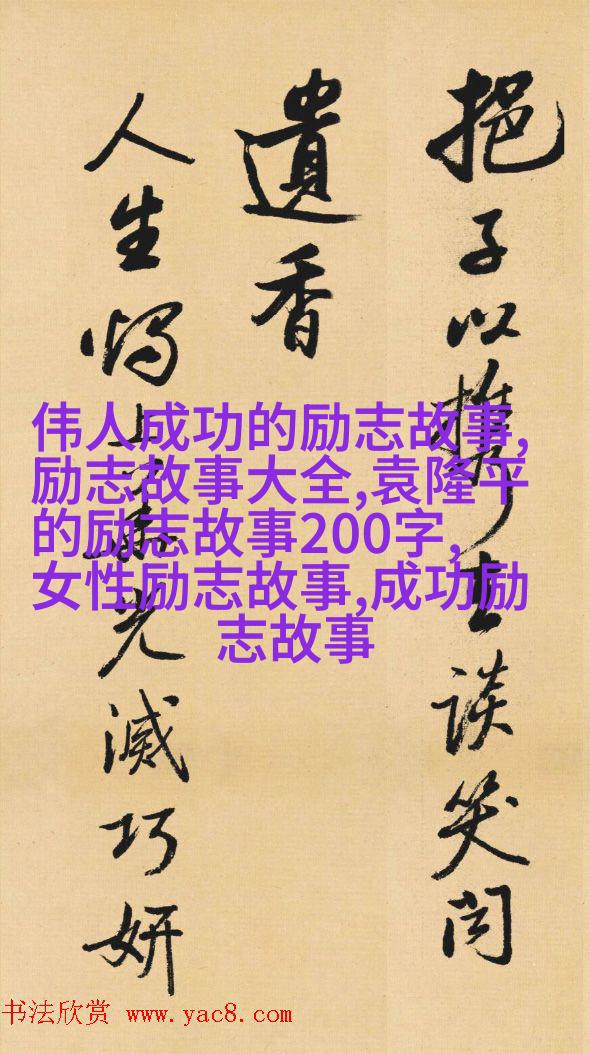 挹子以攜談笑
遺香
人生燭上華光滅巧妍
伟人成功的励志故事,
励志故事大全,袁隆平
的励志故事200字,
女性励志故事,成功励
志故事
书法欣赏 www.yac8.com